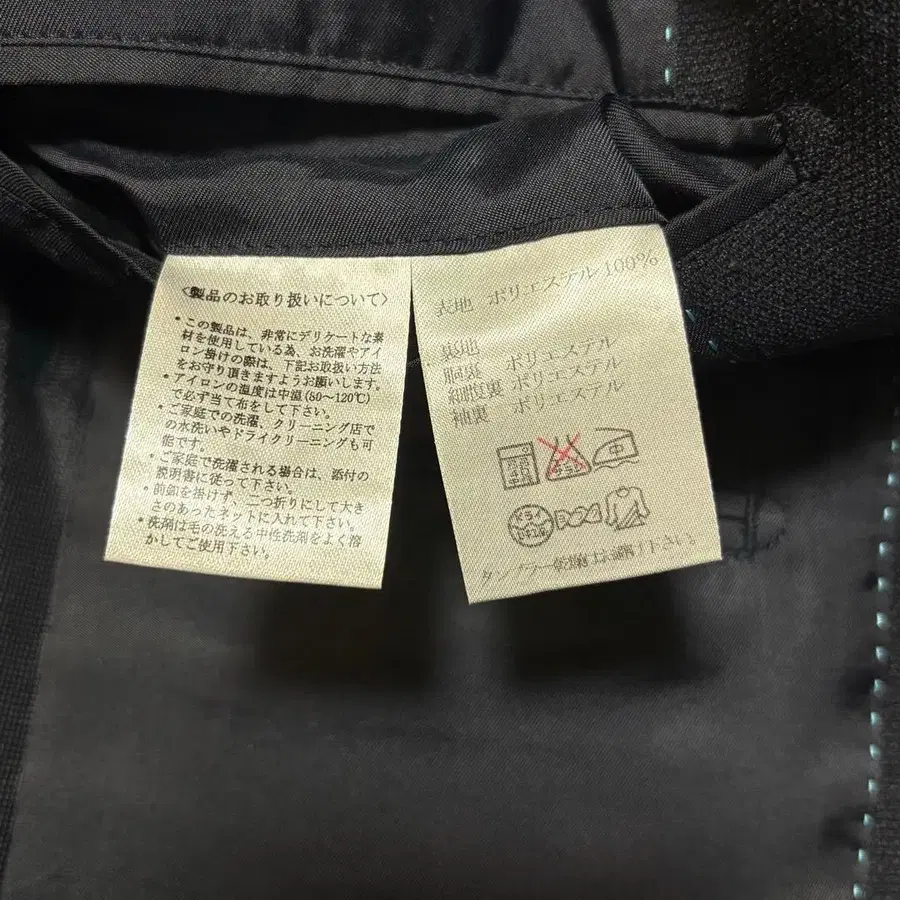 〈製品のお取り扱いについて〉
•この製品は、非常にデリケートな素
材を使用している為、お洗濯やアイ
ロン掛けの際は、下記お取扱い方法
をお守り頂きますようお願いします。
•アイロンの温度は中温(80〜120℃)
で必ず当て布をして下さい。
•ご家庭での洗濯、クリーニング店で
の水洗いやドライクリーニングも可
能です。
•ご家庭で洗濯される場合は、添付の
説明書に従って下さい。
•前釦を掛けず、二つ折りにして大き
さのあったネットに入れて下さい。
•洗剤は毛の洗える中性洗剤をよく溶
かしてご使用下さい。
表地 ポリエステル100%
裏地
胴裏 ポリエステル
細腹裏 ポリエステル
袖裏 ポリエステル
中
ドライ
タンブラー乾燥はお避け下さい。